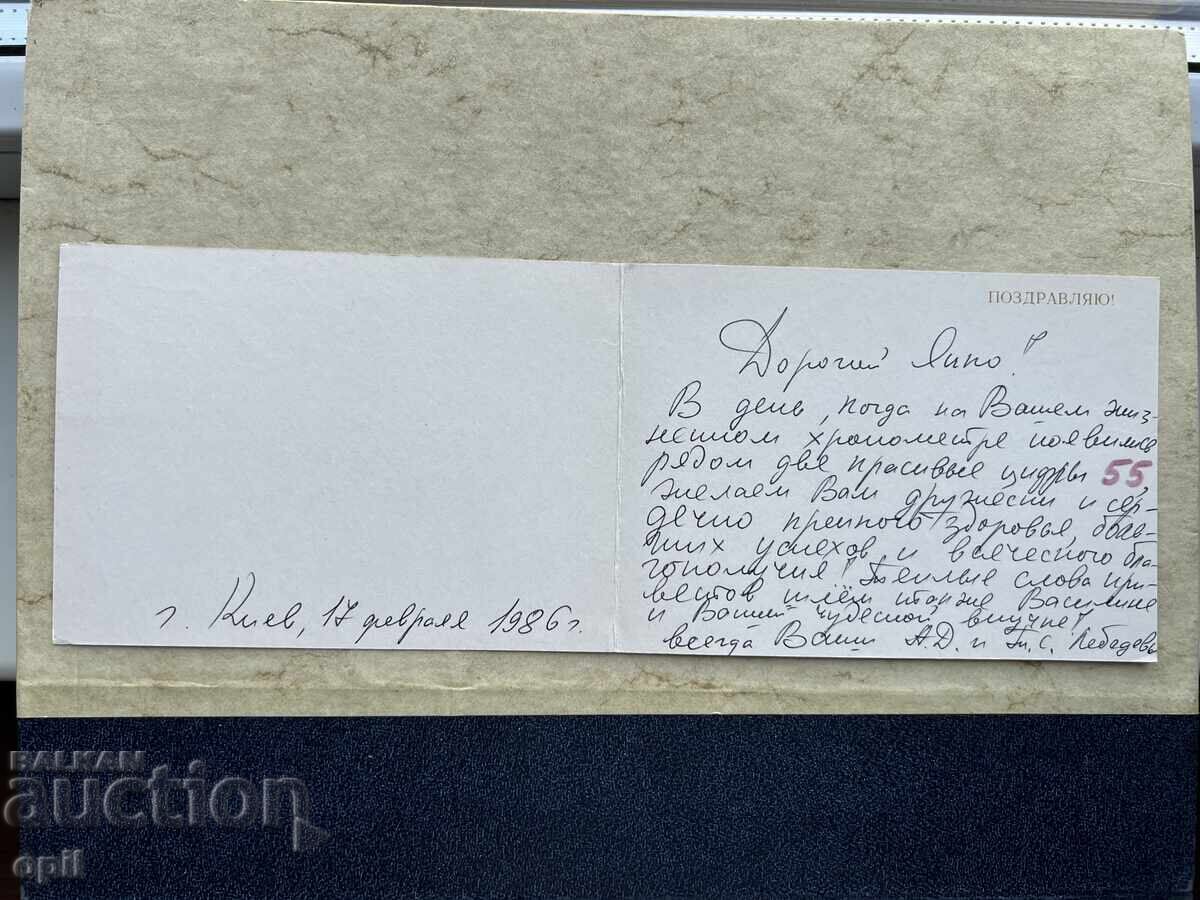 ПОЗДРАВЛЯЮ!
Дорогой Янко!
В день, когда на Вашем жиз-
ненном хронометре появились
рядом две красивые цифры 55,
желаем Вам дружески и сер-
дечно крепкого здоровья, боль-
ших успехов и всяческого бла-
гополучия! Теплые слова при-
ветов шлём также Василине
и Вашей чудесной внучке!
всегда Ваши А.Д. и Т.С. Лебедевы
г. Киев, 17 февраля 1986 г.
BALKAN
auction
opil